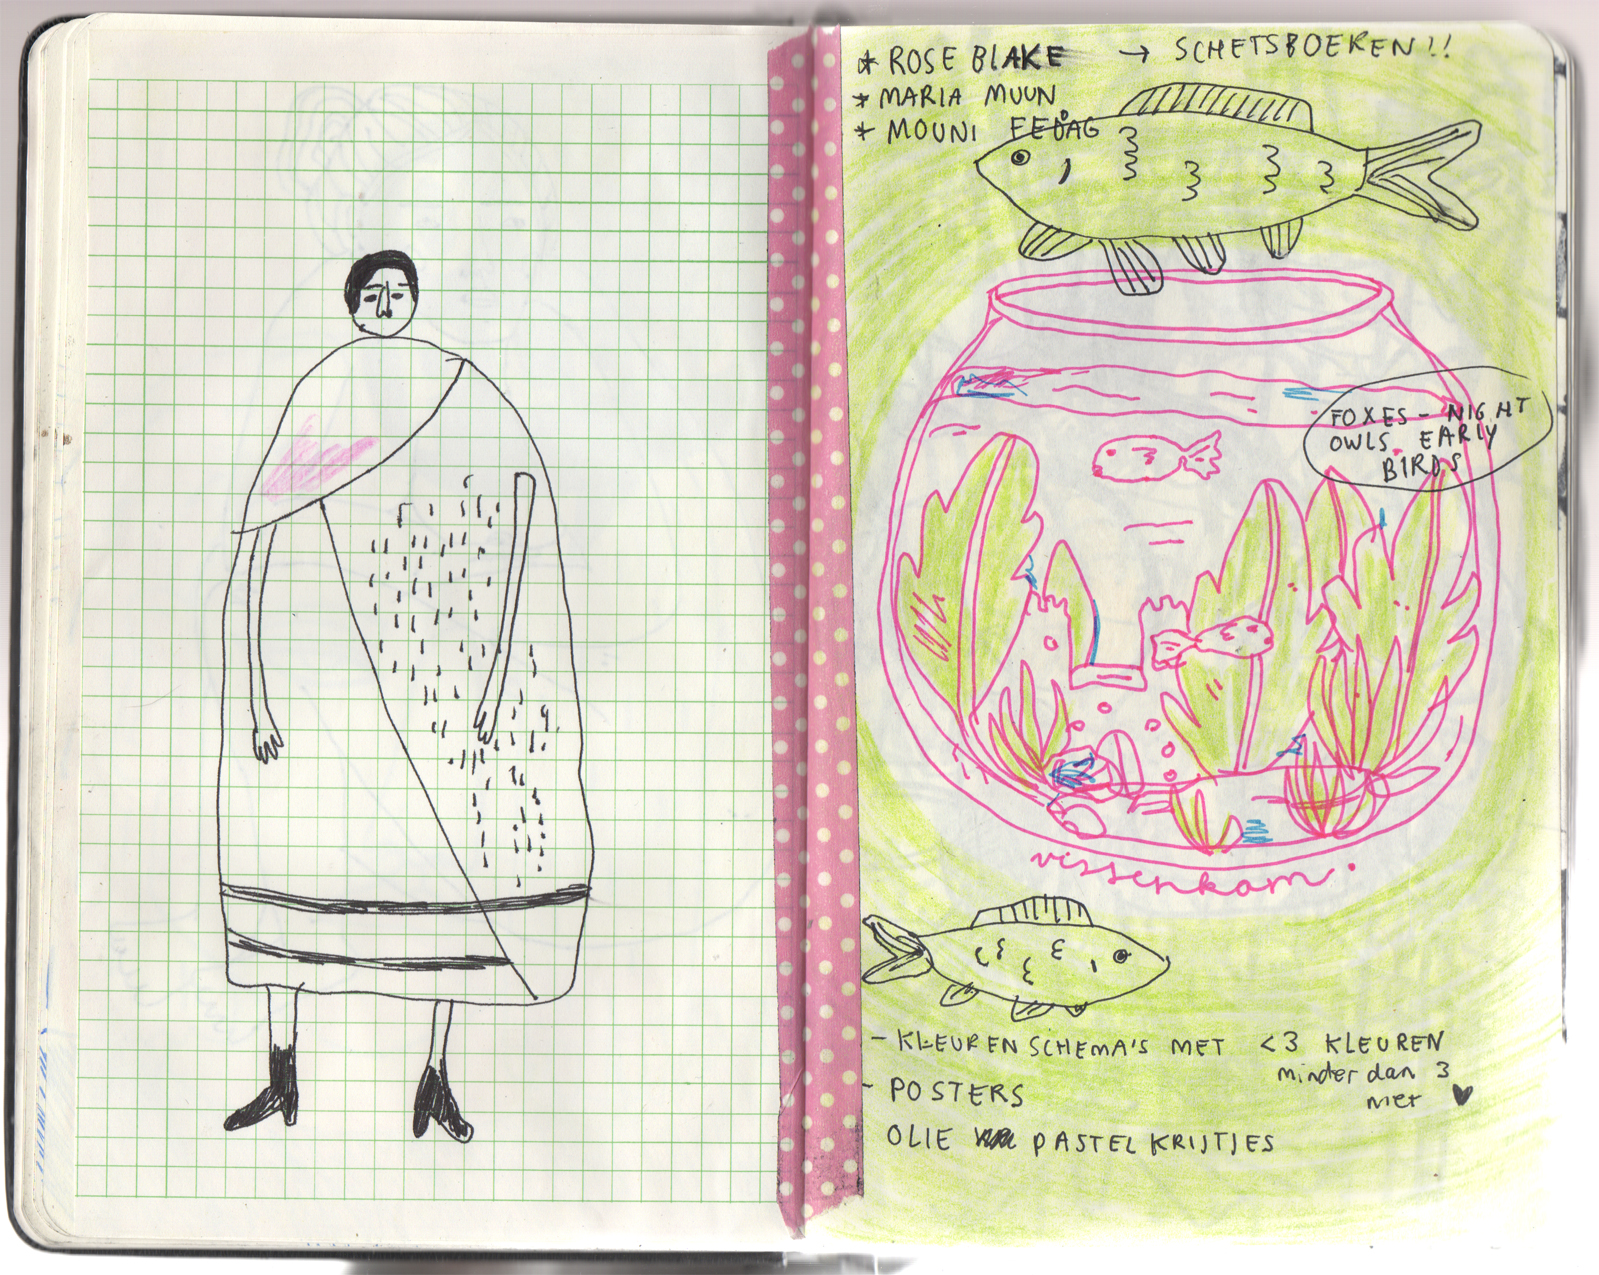 * ROSE BLAKE → SCHETSBOEKEN!!
* MARIA MUUN
* MOUNI
FOXES - NIGHT
OWLS EARLY
BIRDS
vissenkom.
- KLEURENSCHEMA'S MET <3 KLEUREN
minder dan 3
niet ♥
- POSTERS
OLIE PASTEL KRIJTJES